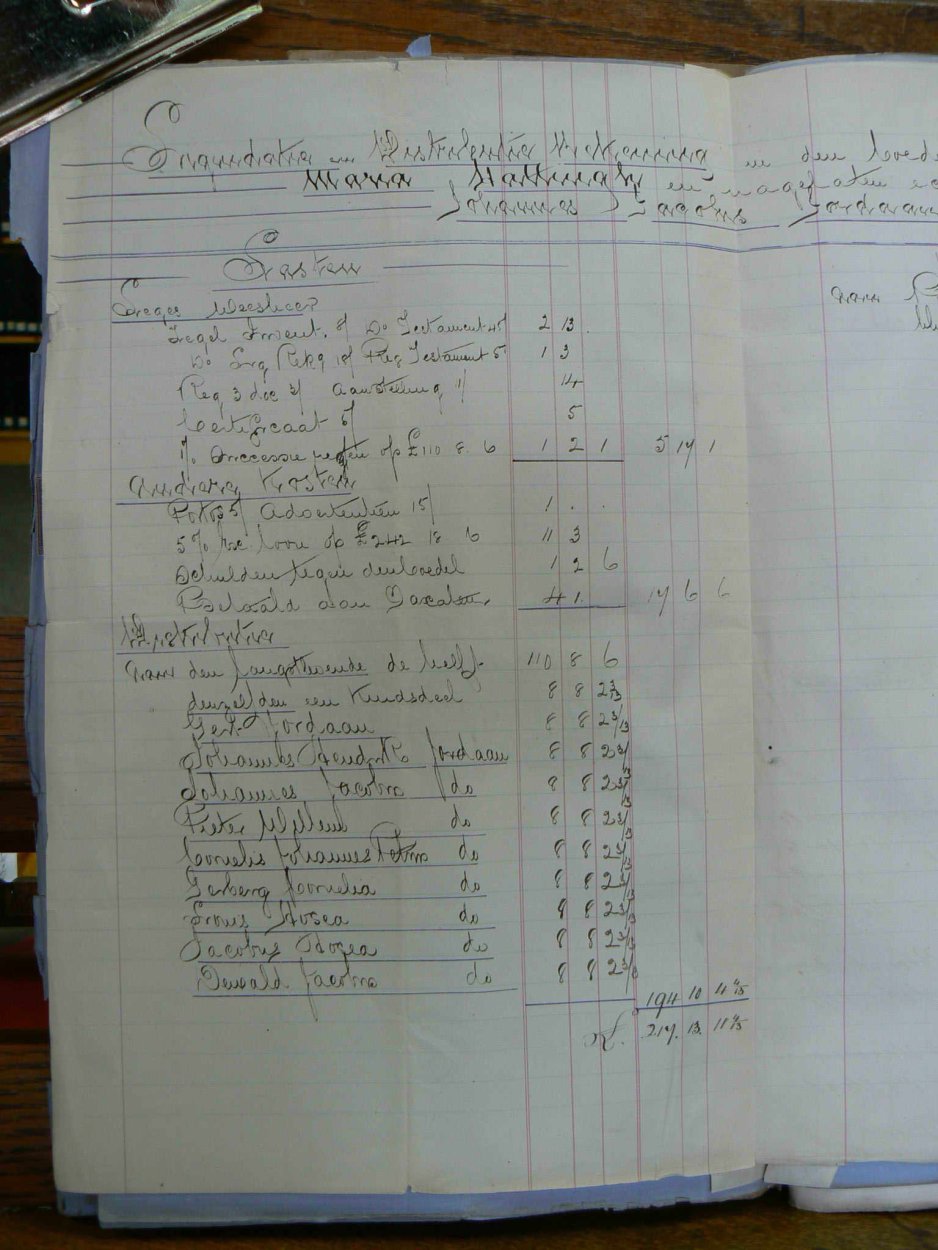 Liquidatie en Distributie Rekening in den boedel
Maria Hattingh en nagelaten
Johannes Jacobus Jordaan
Lasten
Leges Weesheer
Zegel Invent. 8/ Do Testament 45/ 2 13 .
Do Liq Rekg 18/ Reg Testament 5/ 1 3
Reg 3 doc 3/ Aanstelling 1/ 4
Certificaat 5/ 5
1% Successie regten op £110 8. 6 1 2 1 5 17 1
Andere Kosten
Porto 5/ Advertentien 15/ 1 . .
5% loon op £242 18 6 11 3
Schulden tegen den boedel 1 2 6
Betaald aan Taxateur 4 1 . 17 6 6
Distributie
Aan den langstlevende de helft 110 8 6
denzelfden een Kindsdeel 8 8 2 3/13
Gert Jordaan 8 8 2 3/13
Johannes Hendrik Jordaan 8 8 2 3/13
Johannes Jacobus do 8 8 2 3/13
Pieter Willem do 8 8 2 3/13
Cornelis Johannes do 8 8 2 3/13
Gerberg Cornelia do 8 8 2 3/13
Louis Hosea do 8 8 2 3/13
Jacobus Hosea do 8 8 2 3/13
Dewald Jacobus do 8 8 2 3/13
194 10 4
217. 13. 11
aan